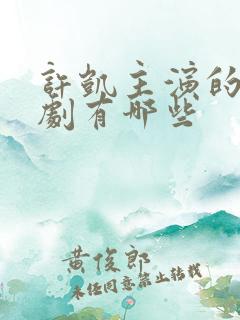 許凱主演的
劇有哪些
黄俊郎
未经同意禁止转载